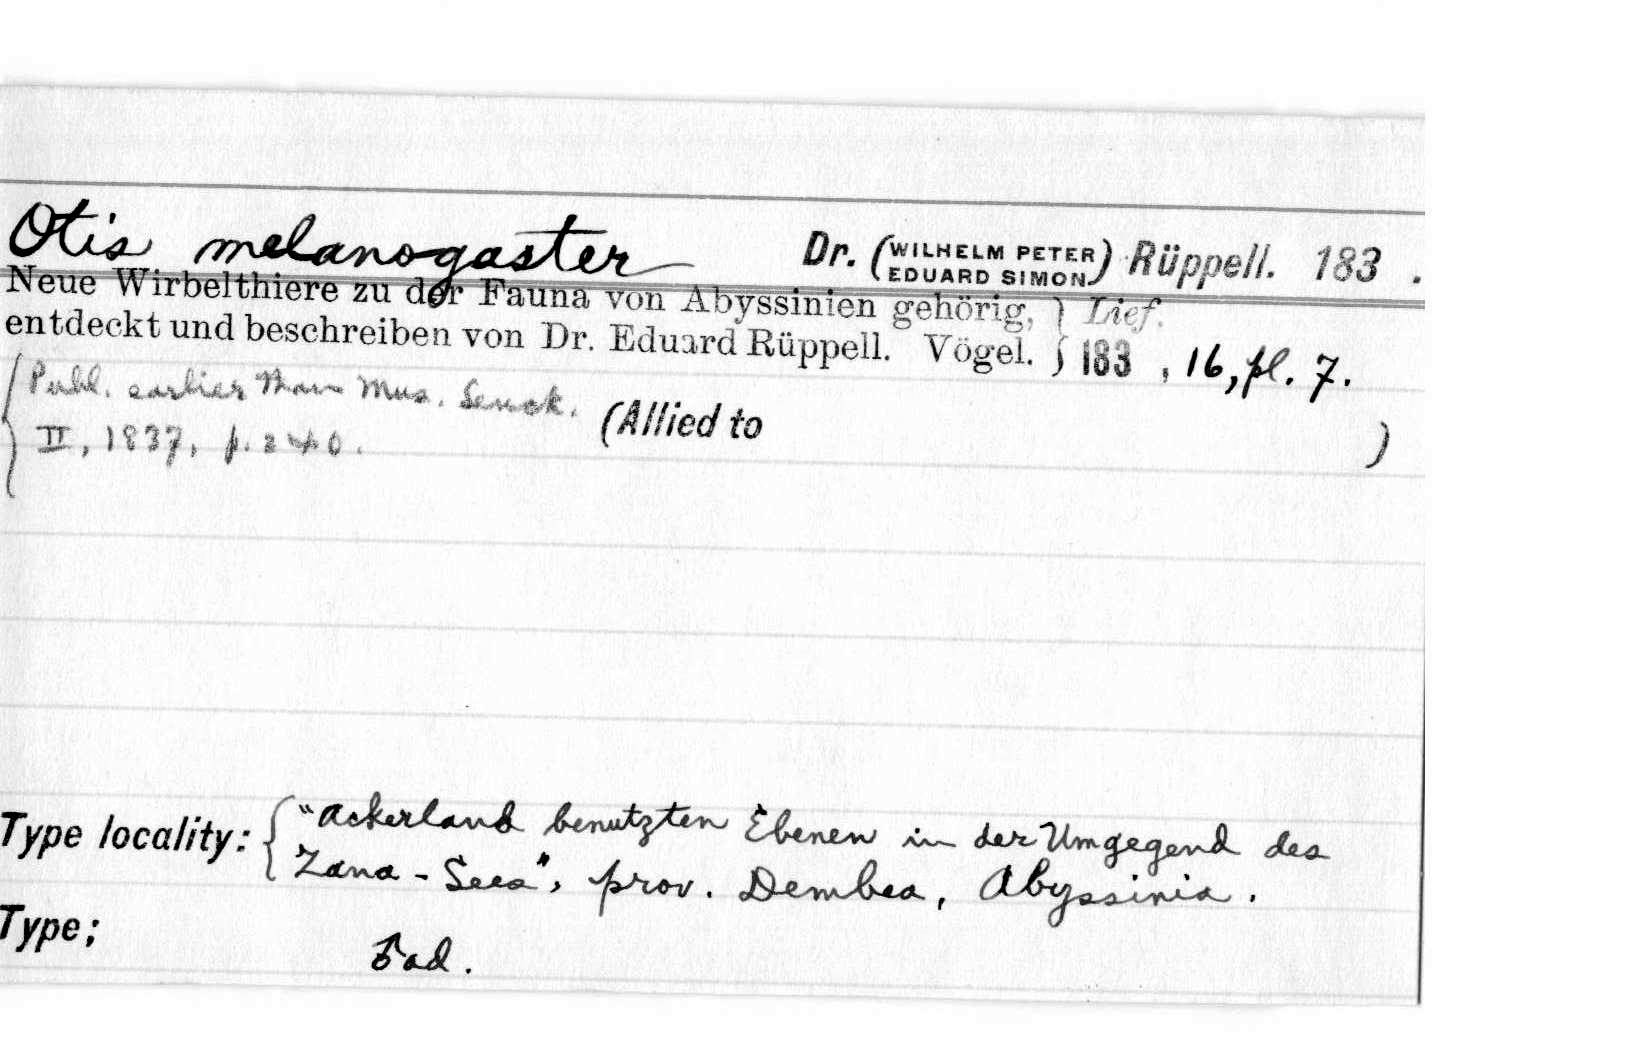 Otis melanogaster Dr. (WILHELM PETER EDUARD SIMON) Rüppell. 183 .
Neue Wirbelthiere zu der Fauna von Abyssinien gehörig, } Lief.
entdeckt und beschreiben von Dr. Eduard Rüppell. Vögel. } 183 , 16, pl. 7.
{ Publ. earlier than Mus. Senck.
II, 1837, p. 240. (Allied to )
Type locality: { "Ackerland benutzten Ebenen in der Umgegend des
Zana-Sees", prov. Dembea, Abyssinia.
Type; ♂ ad.